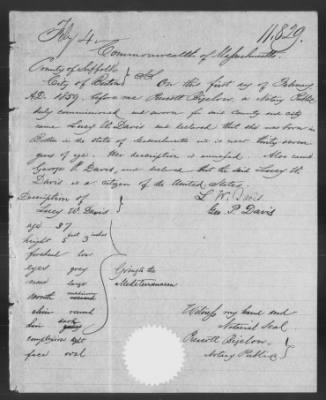 Feby 4. 11,829.
Commonwealth of Massachusetts.
County of Suffolk }
City of Boston } S.S. On the first day of February
A.D. 1859, before me Prescott Bigelow, a Notary Public
duly commissioned and sworn for said County and City
came Lucy W. Davis and declared that she was born in
Boston in the state of Massachusetts is now thirty seven
years of age. Her description is annexed. Also came
George P. Davis, and declared that the said Lucy W.
Davis is a citizen of the United States.
Description of L. W. Davis
Lucy W. Davis Geo. P. Davis
age 37
height 5 feet 3 inches
forehead low
eyes grey
nose large
Going to the
Mediterranean
mouth medium
chin round
hair
complexion light
face oval
Witness my hand and
Notarial Seal.
Prescott Bigelow
Notary Public